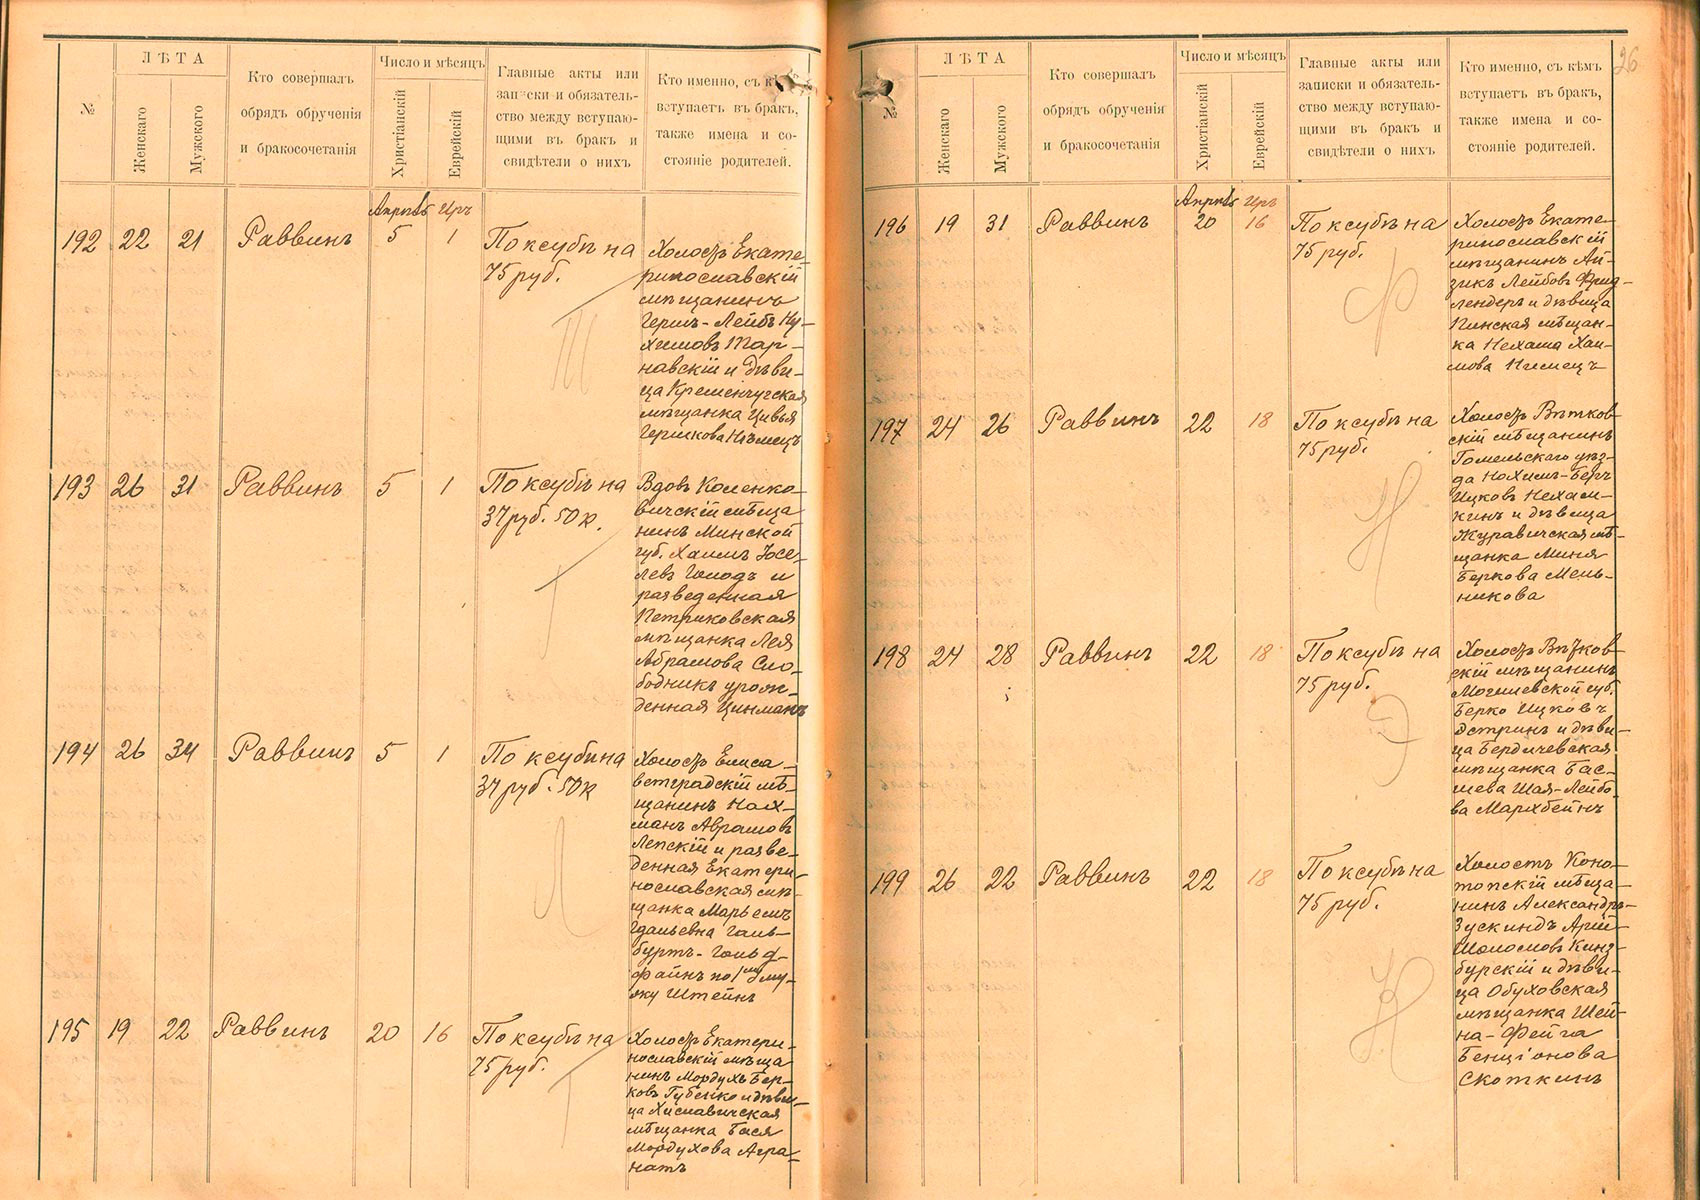 №
ЛѢТА
Женскаго
Мужского
Кто совершалъ
обрядъ обрученія
и бракосочетанія
Число и мѣсяцъ
Христіанскій
Еврейскій
Главные акты или
записки и обязатель-
ство между вступаю-
щими въ бракъ и
свидѣтели о нихъ
Кто именно, съ кѣмъ
вступаетъ въ бракъ,
также имена и со-
стояніе родителей.
Апрѣль Иръ
192 22 21 Раввинъ 5 1
По ксубѣ на
75 руб.
Холостъ Екате-
ринославскій
мѣщанинъ
Гершъ-Лейбъ Ну-
химовъ Тар-
навскій и дѣви-
ца Кременчугская
мѣщанка Цивья
Гершкова Нѣмецъ
193 26 31 Раввинъ 5 1
По ксубѣ на
37 руб. 50 к.
Вдовъ Коленко-
вичскій мѣща
нинъ Минской
губ. Хаимъ Іосе-
левъ Голодъ и
разведенная
Петриковская
мѣщанка Лея
Абрамова Сло-
бодникъ урож-
денная Цинманъ
194 26 34 Раввинъ 5 1
По ксубѣ на
37 руб. 50 к
Холостъ Елиса-
ветградскій мѣ-
щанинъ Нах-
манъ Аврамовъ
Лепскій и разве-
денная Екатери-
нославская мѣ-
щанка Марьемъ
Гдальевна Голь-
буртъ-Гольд-
файнъ по 1му му-
жу Штейнъ
195 19 22 Раввинъ 20 16
По ксубѣ на
75 руб.
Холостъ Екатери-
нославскій мѣща
нинъ Мордухъ Бер-
ковъ Губенко и дѣви-
ца Хиславичская
мѣщанка Бася
Мордухова Агра-
натъ
26
№
ЛѢТА
Женскаго
Мужского
Кто совершалъ
обрядъ обрученія
и бракосочетанія
Число и мѣсяцъ
Христіанскій
Еврейскій
Главные акты или
записки и обязатель-
ство между вступаю-
щими въ бракъ и
свидѣтели о нихъ
Кто именно, съ кѣмъ
вступаетъ въ бракъ,
также имена и со-
стояніе родителей.
Апрѣль Иръ
196 19 31 Раввинъ 20 16
По ксубѣ на
75 руб.
Ф
Холостъ Екате-
ринославскій
мѣщанинъ Ай-
зикъ Лейбовъ Фрид-
лендеръ и дѣвица
Пинская мѣщан-
ка Нехама Хаи-
мова Нимецъ
197 24 26 Раввинъ 22 18
По ксубѣ на
75 руб.
Н
Холостъ Вѣтков-
скій мѣщанинъ
Гомельскаго уѣз-
да Нохимъ-Беръ
Ицковъ Нехам-
кинъ и дѣвица
Журавичская мѣ-
щанка Миня
Беркова Мель-
никова
198 24 28 Раввинъ 22 18
По ксубѣ на
75 руб.
Э
Холостъ Вѣтков-
скій мѣщанинъ
Могилевской губ.
Берко Ицковъ
Эстринъ и дѣви-
ца Бердичевская
мѣщанка Бас-
шева Шая-Лейбо-
ва Мархбейнъ
199 26 22 Раввинъ 22 18
По ксубѣ на
75 руб.
К
Холостъ Коно-
топскій мѣща-
нинъ Александръ-
Зускиндъ Арій-
Шоломовъ Кинз-
бурскій и дѣви-
ца Обуховская
мѣщанка Шей-
на-Фейга
Бенціонова
Скоткинъ